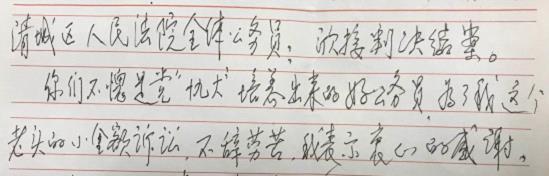 清城区人民法院全体公务员：欣接判决结案。
你们不愧是党"忱大"培养出来的好公务员，为了我这个
老头的小金额诉讼，不辞劳苦，我表示衷心的感谢。